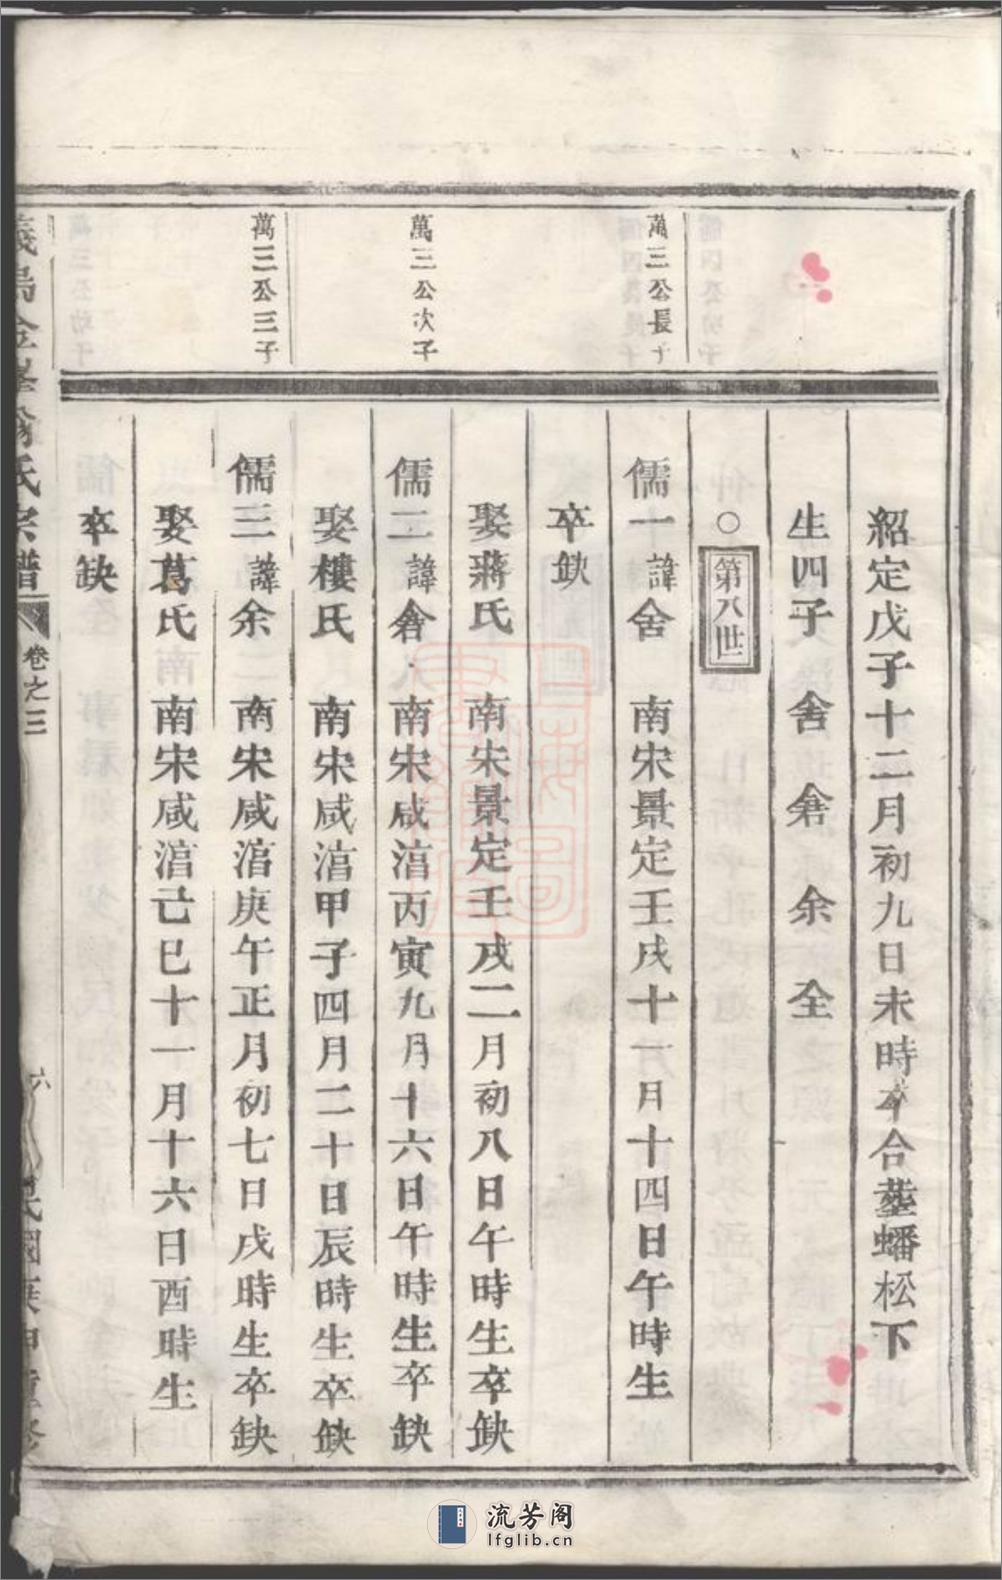 紹定戊子十二月初九日未時卒合塟蟠松下
生四子 舍 倉 余 全
○第八世
萬三公長子
儒一諱舍 南宋景定壬戌十一月十四日午時生
卒缺
娶蔣氏 南宋景定壬戌二月初八日午時生卒缺
萬三公次子
儒二諱倉 南宋咸淯丙寅九月十六日午時生卒缺
娶樓氏 南宋咸淯甲子四月二十日辰時生卒缺
萬三公三子
儒三諱余 南宋咸淯庚午正月初七日戌時生卒缺
娶葛氏 南宋咸淯己巳十一月十六日酉時生
卒缺
氏宗譜 卷之三 六
流芳阁
lfglib.cn